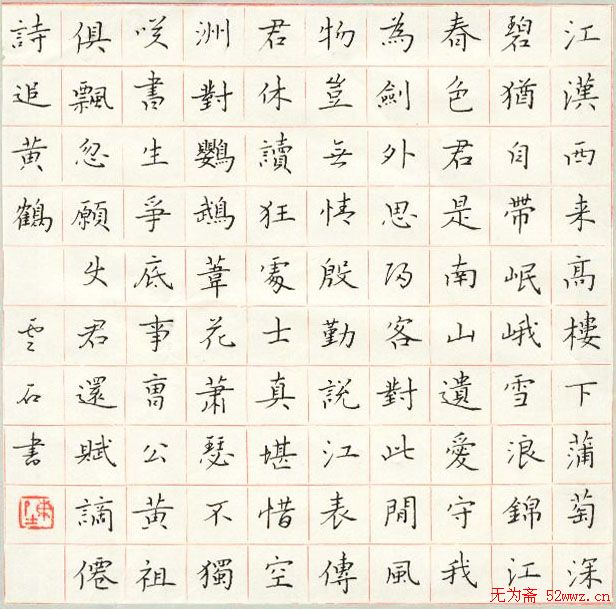 江漢西来高樓下蒲萄深
碧猶自帶岷峨雪浪錦江
春色君是南山遺愛守我
為劍外思歸客對此閒風
物豈無情殷勤說江表傳
君休讀狂處士真堪惜空
洲對鸚鵡葦花蕭瑟不獨
咲書生爭底事曹公黃祖
俱飄忽願史君還賦謫僊
詩追黃鶴
雲石書
无为斋 52wwz.cn